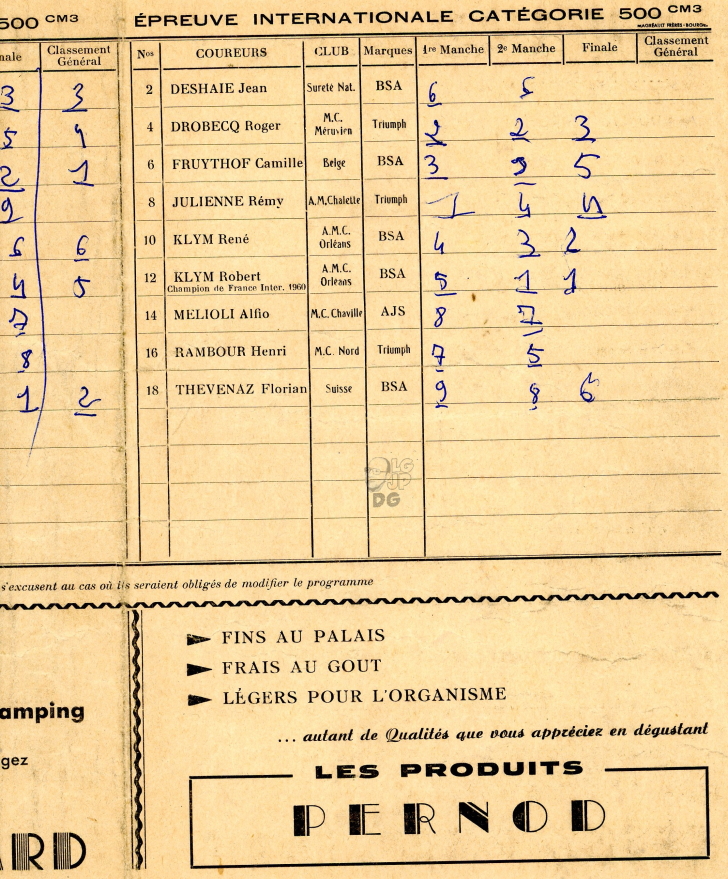 500 CM3
ÉPREUVE INTERNATIONALE CATÉGORIE 500 CM3
MAGRÉAULT FRÈRES - BOURGES.
nale Classement Général
Nos COUREURS CLUB Marques 1re Manche 2e Manche Finale Classement Général
3 3
2 DESHAIE Jean Sureté Nat. BSA 6
5 4
4 DROBECQ Roger M.C. Méruvien Triumph 2 2 3
2 1
6 FRUYTHOF Camille Belge BSA 3 9 5
9
8 JULIENNE Rémy A.M.Chalette Triumph 1 4 4
6 6
10 KLYM René A.M.C. Orléans BSA 4 3 2
4 5
12 KLYM Robert A.M.C. Orléans BSA 5 1 1
Champion de France Inter. 1960
7
14 MELIOLI Alfio M.C. Chaville AJS 8 7
8
16 RAMBOUR Henri M.C. Nord Triumph 7 5
1 2
18 THEVENAZ Florian Suisse BSA 9 8 6
LG
JP
DG
s'excusent au cas où ils seraient obligés de modifier le programme
FINS AU PALAIS
FRAIS AU GOUT
LÉGERS POUR L'ORGANISME
... autant de Qualités que vous appréciez en dégustant
LES PRODUITS
PERNOD
amping
gez
ARD